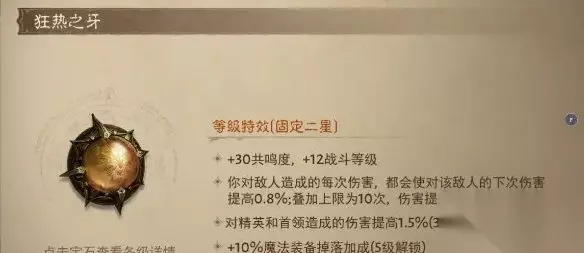 狂热之牙
等级特效(固定二星)
+30共鸣度，+12战斗等级
你对敌人造成的每次伤害，都会使对该敌人的下次伤害
提高0.8%;叠加上限为10次，伤害提
对精英和首领造成的伤害提高1.5%(3
+10%魔法装备掉落加成(5级解锁)
点击宝石查看各级详情